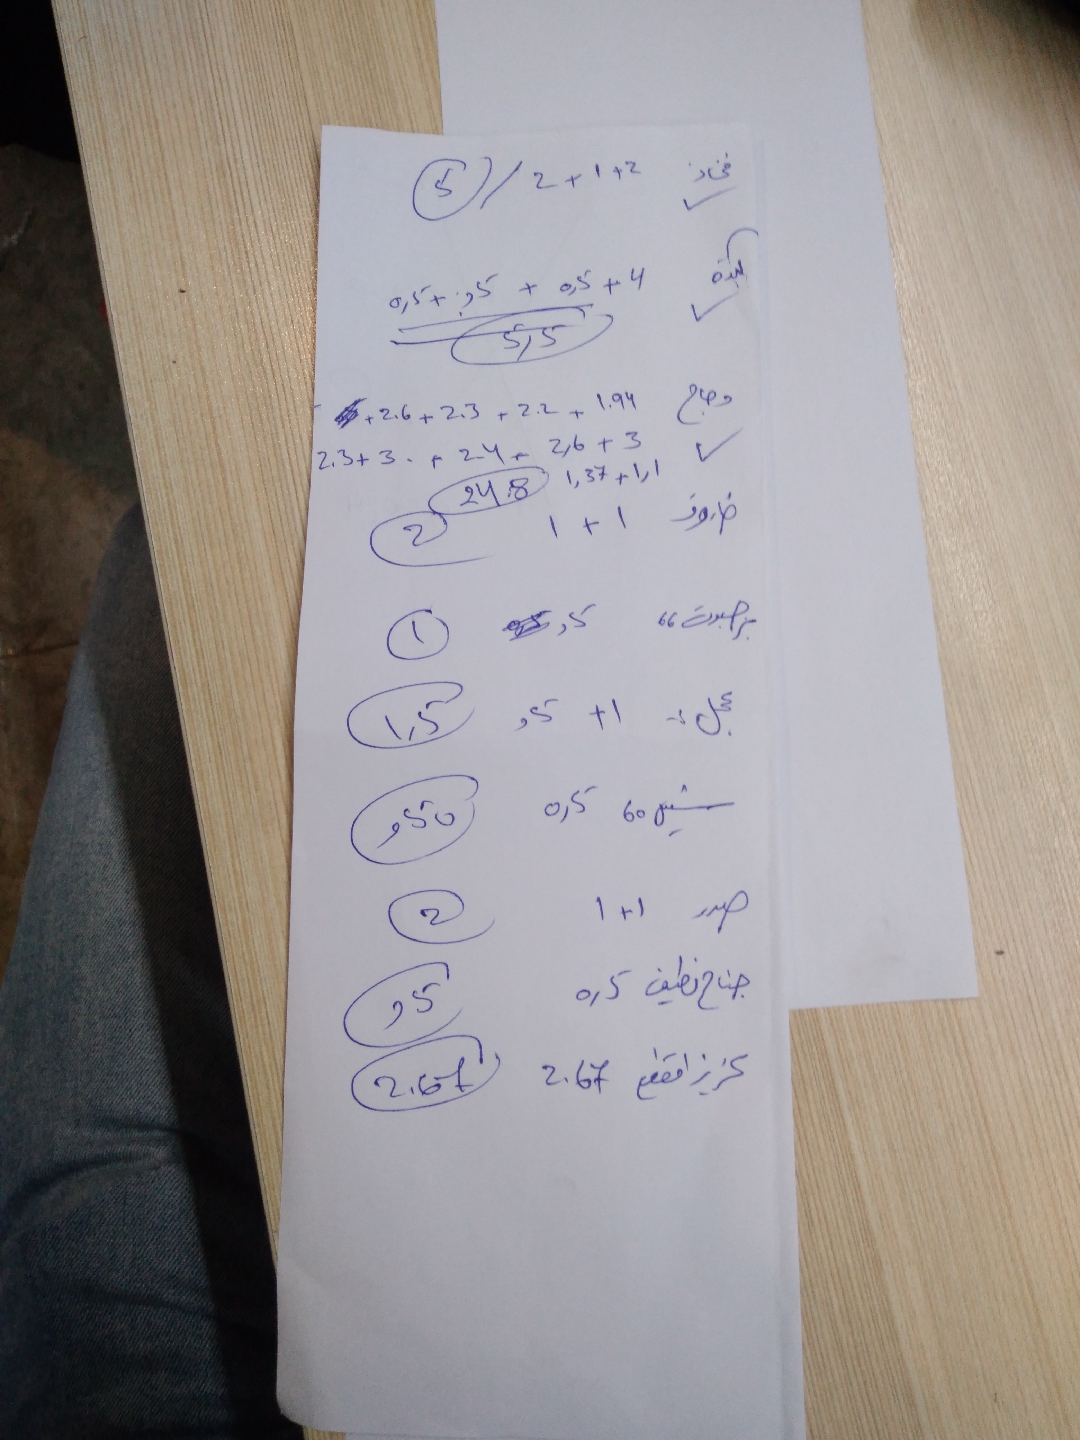 فخاذ 2+1+2 / 5
كبدة 4+0,5+0,5+0,5
5,5
دجاج 1.94+2.2+2.3+2.6+
3+2,6+2.4+3.+2.3
1,1+1,37 24.8
خاروف 1+1 2
66 ,5 1
عجل 1+,5 1,5
شيش 60 0,5 ,50
صدر 1+1 2
جناح نظيف 0,5 ,5
2.67 2.67